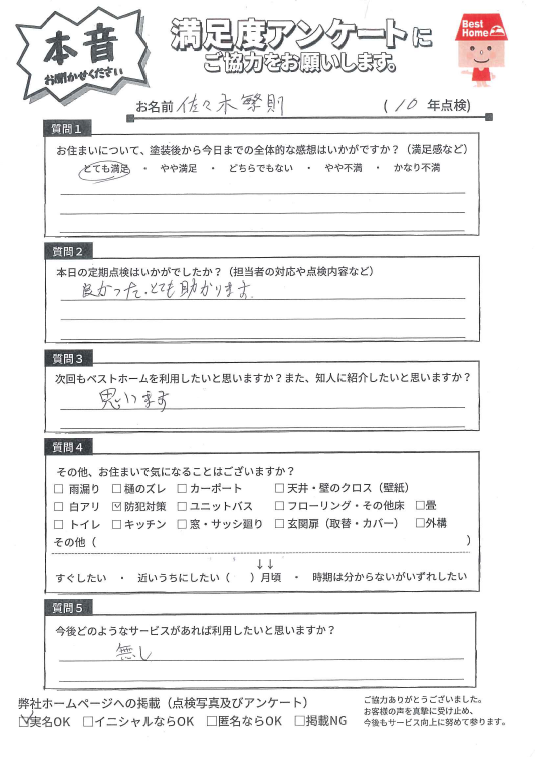 本音
お聞かせください
満足度アンケートに
ご協力をお願いします。
Best
Home
お名前 佐々木繁則 ( 10 年点検)
質問1
お住まいについて、塗装後から今日までの全体的な感想はいかがですか？（満足感など）
とても満足 ・ やや満足 ・ どちらでもない ・ やや不満 ・ かなり不満
質問2
本日の定期点検はいかがでしたか？（担当者の対応や点検内容など）
良かった。とても助かります。
質問3
次回もベストホームを利用したいと思いますか？また、知人に紹介したいと思いますか？
思います
質問4
その他、お住まいで気になることはございますか？
☐ 雨漏り ☐ 樋のズレ ☐ カーポート ☐ 天井・壁のクロス（壁紙）
☐ 白アリ ☑ 防犯対策 ☐ ユニットバス ☐ フローリング・その他床 ☐畳
☐ トイレ ☐ キッチン ☐ 窓・サッシ廻り ☐ 玄関扉（取替・カバー） ☐外構
その他（ ）
↓↓
すぐしたい ・ 近いうちにしたい（ ）月頃 ・ 時期は分からないがいずれしたい
質問5
今後どのようなサービスがあれば利用したいと思いますか？
無し
弊社ホームページへの掲載（点検写真及びアンケート）
☑実名OK ☐イニシャルならOK ☐匿名ならOK ☐掲載NG
ご協力ありがとうございました。
お客様の声を真摯に受け止め、
今後もサービス向上に努めて参ります。